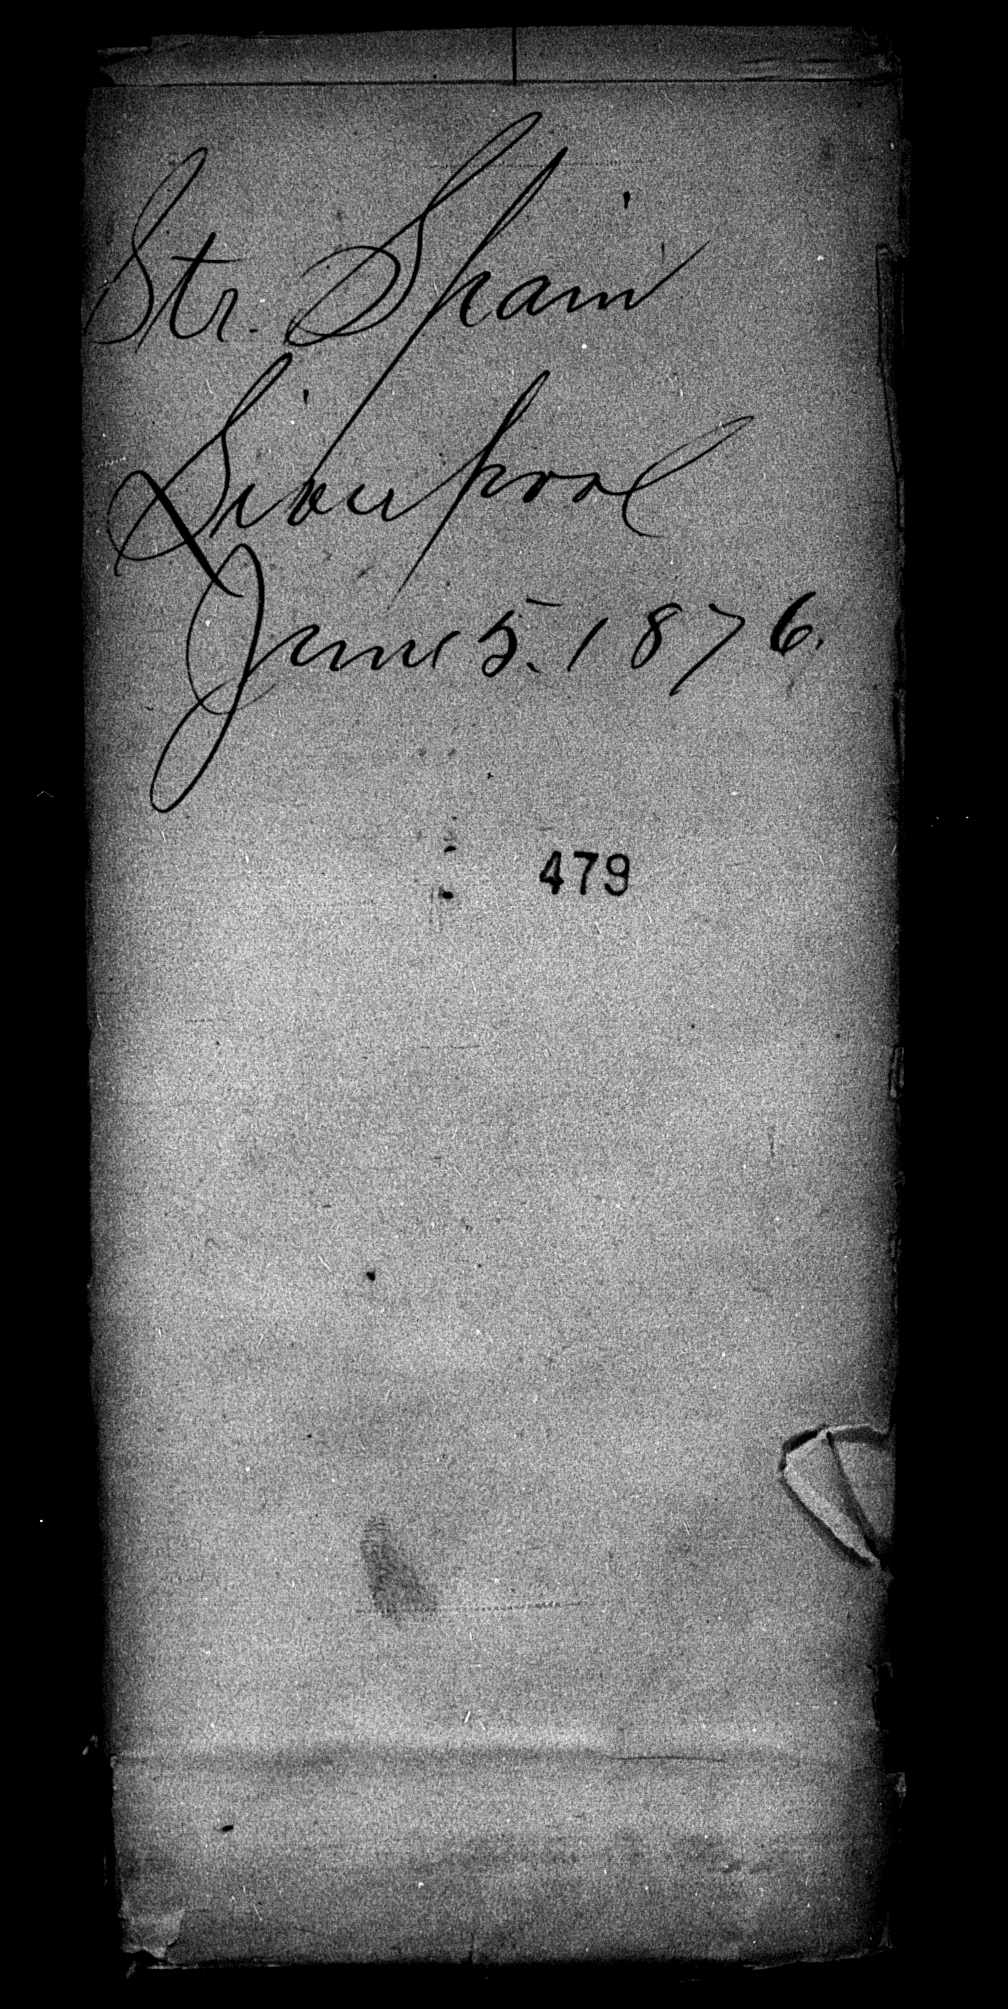 Str. Spain
Liverpool
June 5. 1876.
479